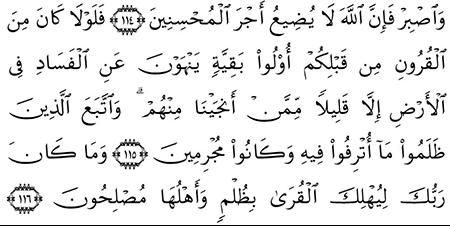 وَاَصْبِرْ فَإِنَّ اللَّهَ لَا يُضِيعُ أَجْرَ الْمُحْسِنِينَ ﴿١١٤﴾ فَلَوْلَا كَانَ مِنَ
الْقُرُونِ مِن قَبْلِكُمْ أُوْلُواْ بَقِيَّةٍ يَنْهَوْنَ عَنِ الْفَسَادِ فِى
الْأَرْضِ إِلَّا قَلِيلًا مِّمَّنْ أَنجَيْنَا مِنْهُمْ ۗ وَاَتَّبَعَ الَّذِينَ
ظَلَمُواْ مَآ أُتْرِفُواْ فِيهِ وَكَانُواْ مُجْرِمِينَ ﴿١١٥﴾ وَمَا كَانَ
رَبُّكَ لِيُهْلِكَ الْقُرَىٰ بِظُلْمٍ وَأَهْلُهَا مُصْلِحُونَ ﴿١١٦﴾